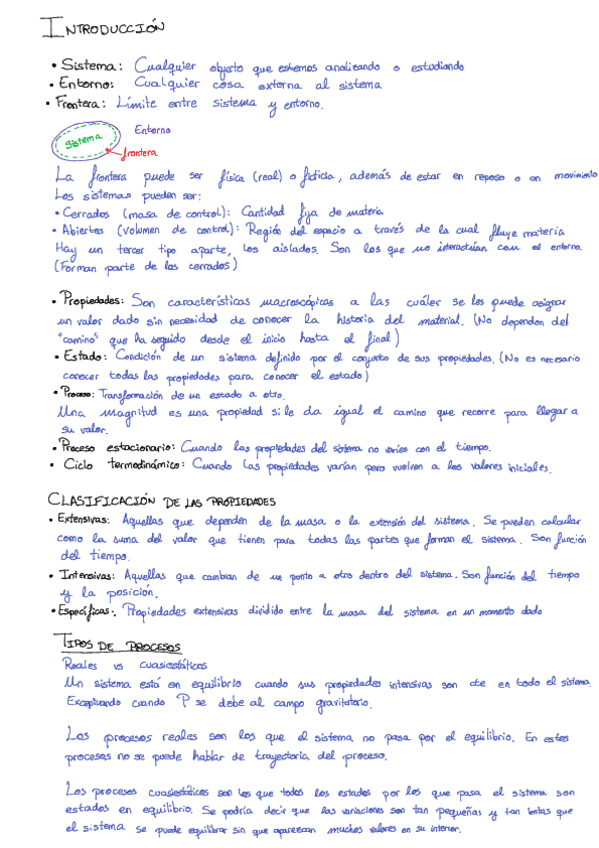 INTRODUCCIÓN
• Sistema: Cualquier objeto que estemos analizando o estudiando
• Entorno: Cualquier cosa externa al sistema
• Frontera: Límite entre sistema y entorno.
Sistema
Entorno
frontera
La frontera puede ser física (real) o ficticia, además de estar en reposo o en movimiento
Los sistemas pueden ser:
• Cerrados (masa de control): Cantidad fija de materia
• Abiertos (volumen de control): Región del espacio a través de la cual fluye materia
Hay un tercer tipo aparte, los aislados. Son los que no interactúan con el entorno.
(Forman parte de los cerrados)
• Propiedades: Son características macroscópicas a las cuáles se les puede asignar
un valor dado sin necesidad de conocer la historia del material. (No dependen del
"camino" que ha seguido desde el inicio hasta el final)
• Estado: Condición de un sistema definido por el conjunto de sus propiedades. (No es necesario
conocer todas las propiedades para conocer el estado)
• Proceso: Transformación de un estado a otro.
Una magnitud es una propiedad si le da igual el camino que recorre para llegar a
su valor.
• Proceso estacionario: Cuando las propiedades del sistema no varían con el tiempo.
• Ciclo termodinámico: Cuando las propiedades varían pero vuelven a los valores iniciales.
CLASIFICACIÓN DE LAS PROPIEDADES
• Extensivas: Aquellas que dependen de la masa o la extensión del sistema. Se pueden calcular
como la suma del valor que tienen para todas las partes que forman el sistema. Son función
del tiempo.
• Intensivas: Aquellas que cambian de un punto a otro dentro del sistema. Son función del tiempo
y la posición.
• Específicas: Propiedades extensivas dividido entre la masa del sistema en un momento dado
TIPOS DE PROCESOS
Reales vs cuasiestáticos
Un sistema está en equilibrio cuando sus propiedades intensivas son cte en todo el sistema.
Exceptuando cuando P se debe al campo gravitatorio.
Los procesos reales son los que el sistema no pasa por el equilibrio. En estos
procesos no se puede hablar de trayectoria del proceso.
Los procesos cuasiestáticos son los que todos los estados por los que pasa el sistema son
estados en equilibrio. Se podría decir que las variaciones son tan pequeñas y tan lentas que
el sistema se puede equilibrar sin que aparezcan muchos valores en su interior.